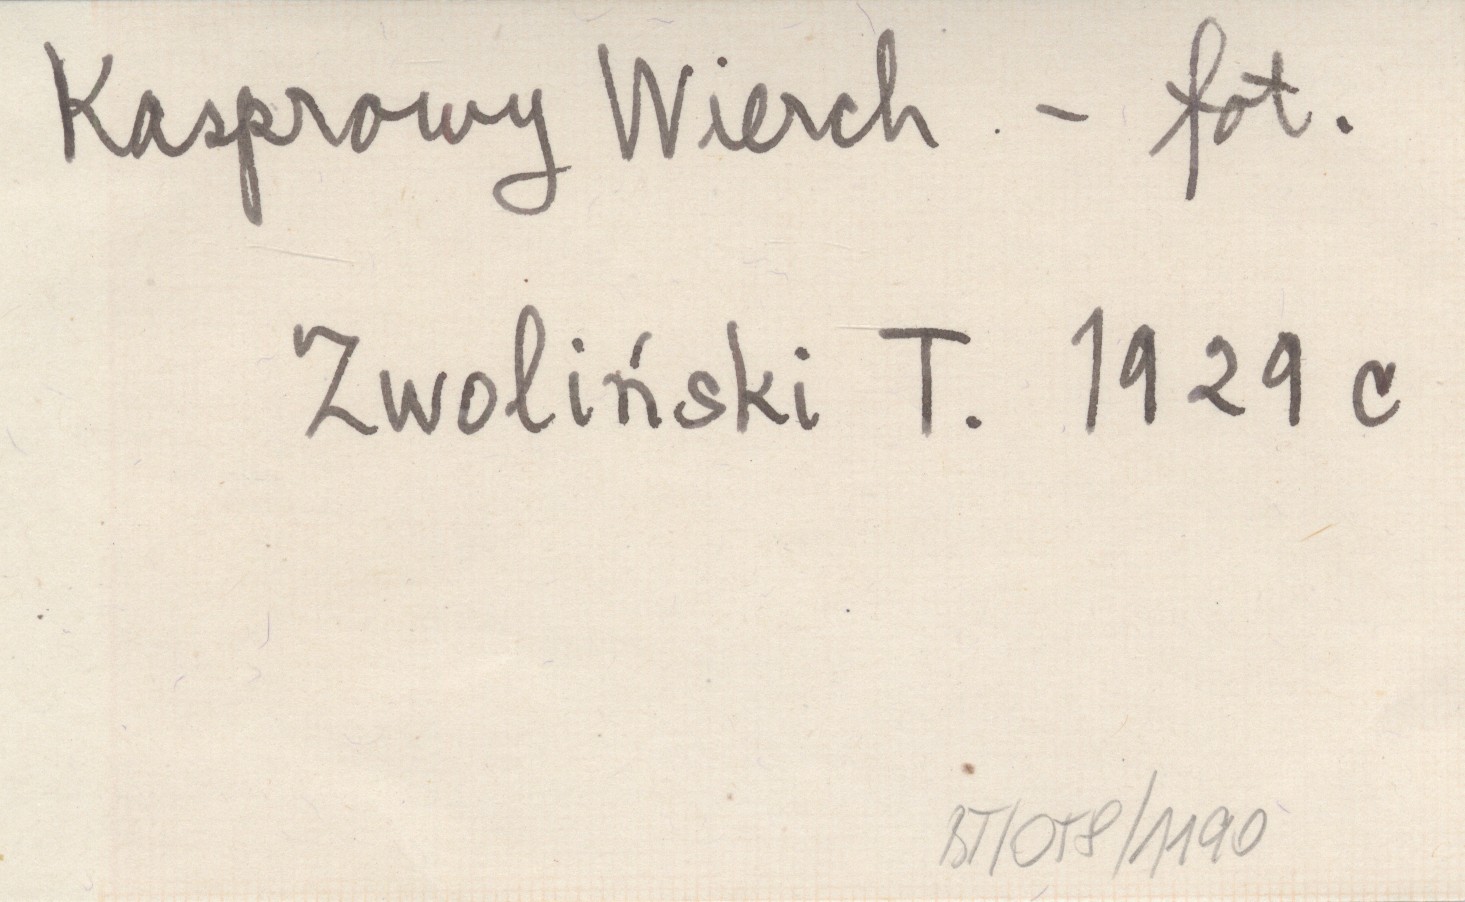 Kasprowy Wierch. - fot.
Zwoliński T. 1929 c
BT/OT8/1190